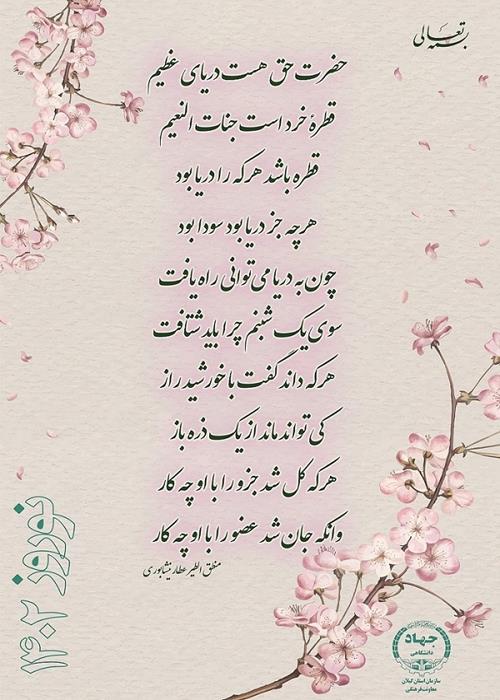 بسمه تعالی
حضرت حق هست دریای عظیم
قطرهٔ خرد است جنات النعیم
قطره باشد هرکه را دریا بود
هرچه جز دریا بود سودا بود
چون به دریا می توانی راه یافت
سوی یک شبنم چرا باید شتافت
هرکه داند گفت با خورشید راز
کی تواند ماند از یک ذره باز
هرکه کل شد جزو را با او چه کار
وانکه جان شد عضو را با او چه کار
منطق الطیر عطار نیشابوری
نوروز ۱۴۰۲
جهاد
دانشگاهی
سازمان استان گیلان
معاونت فرهنگی